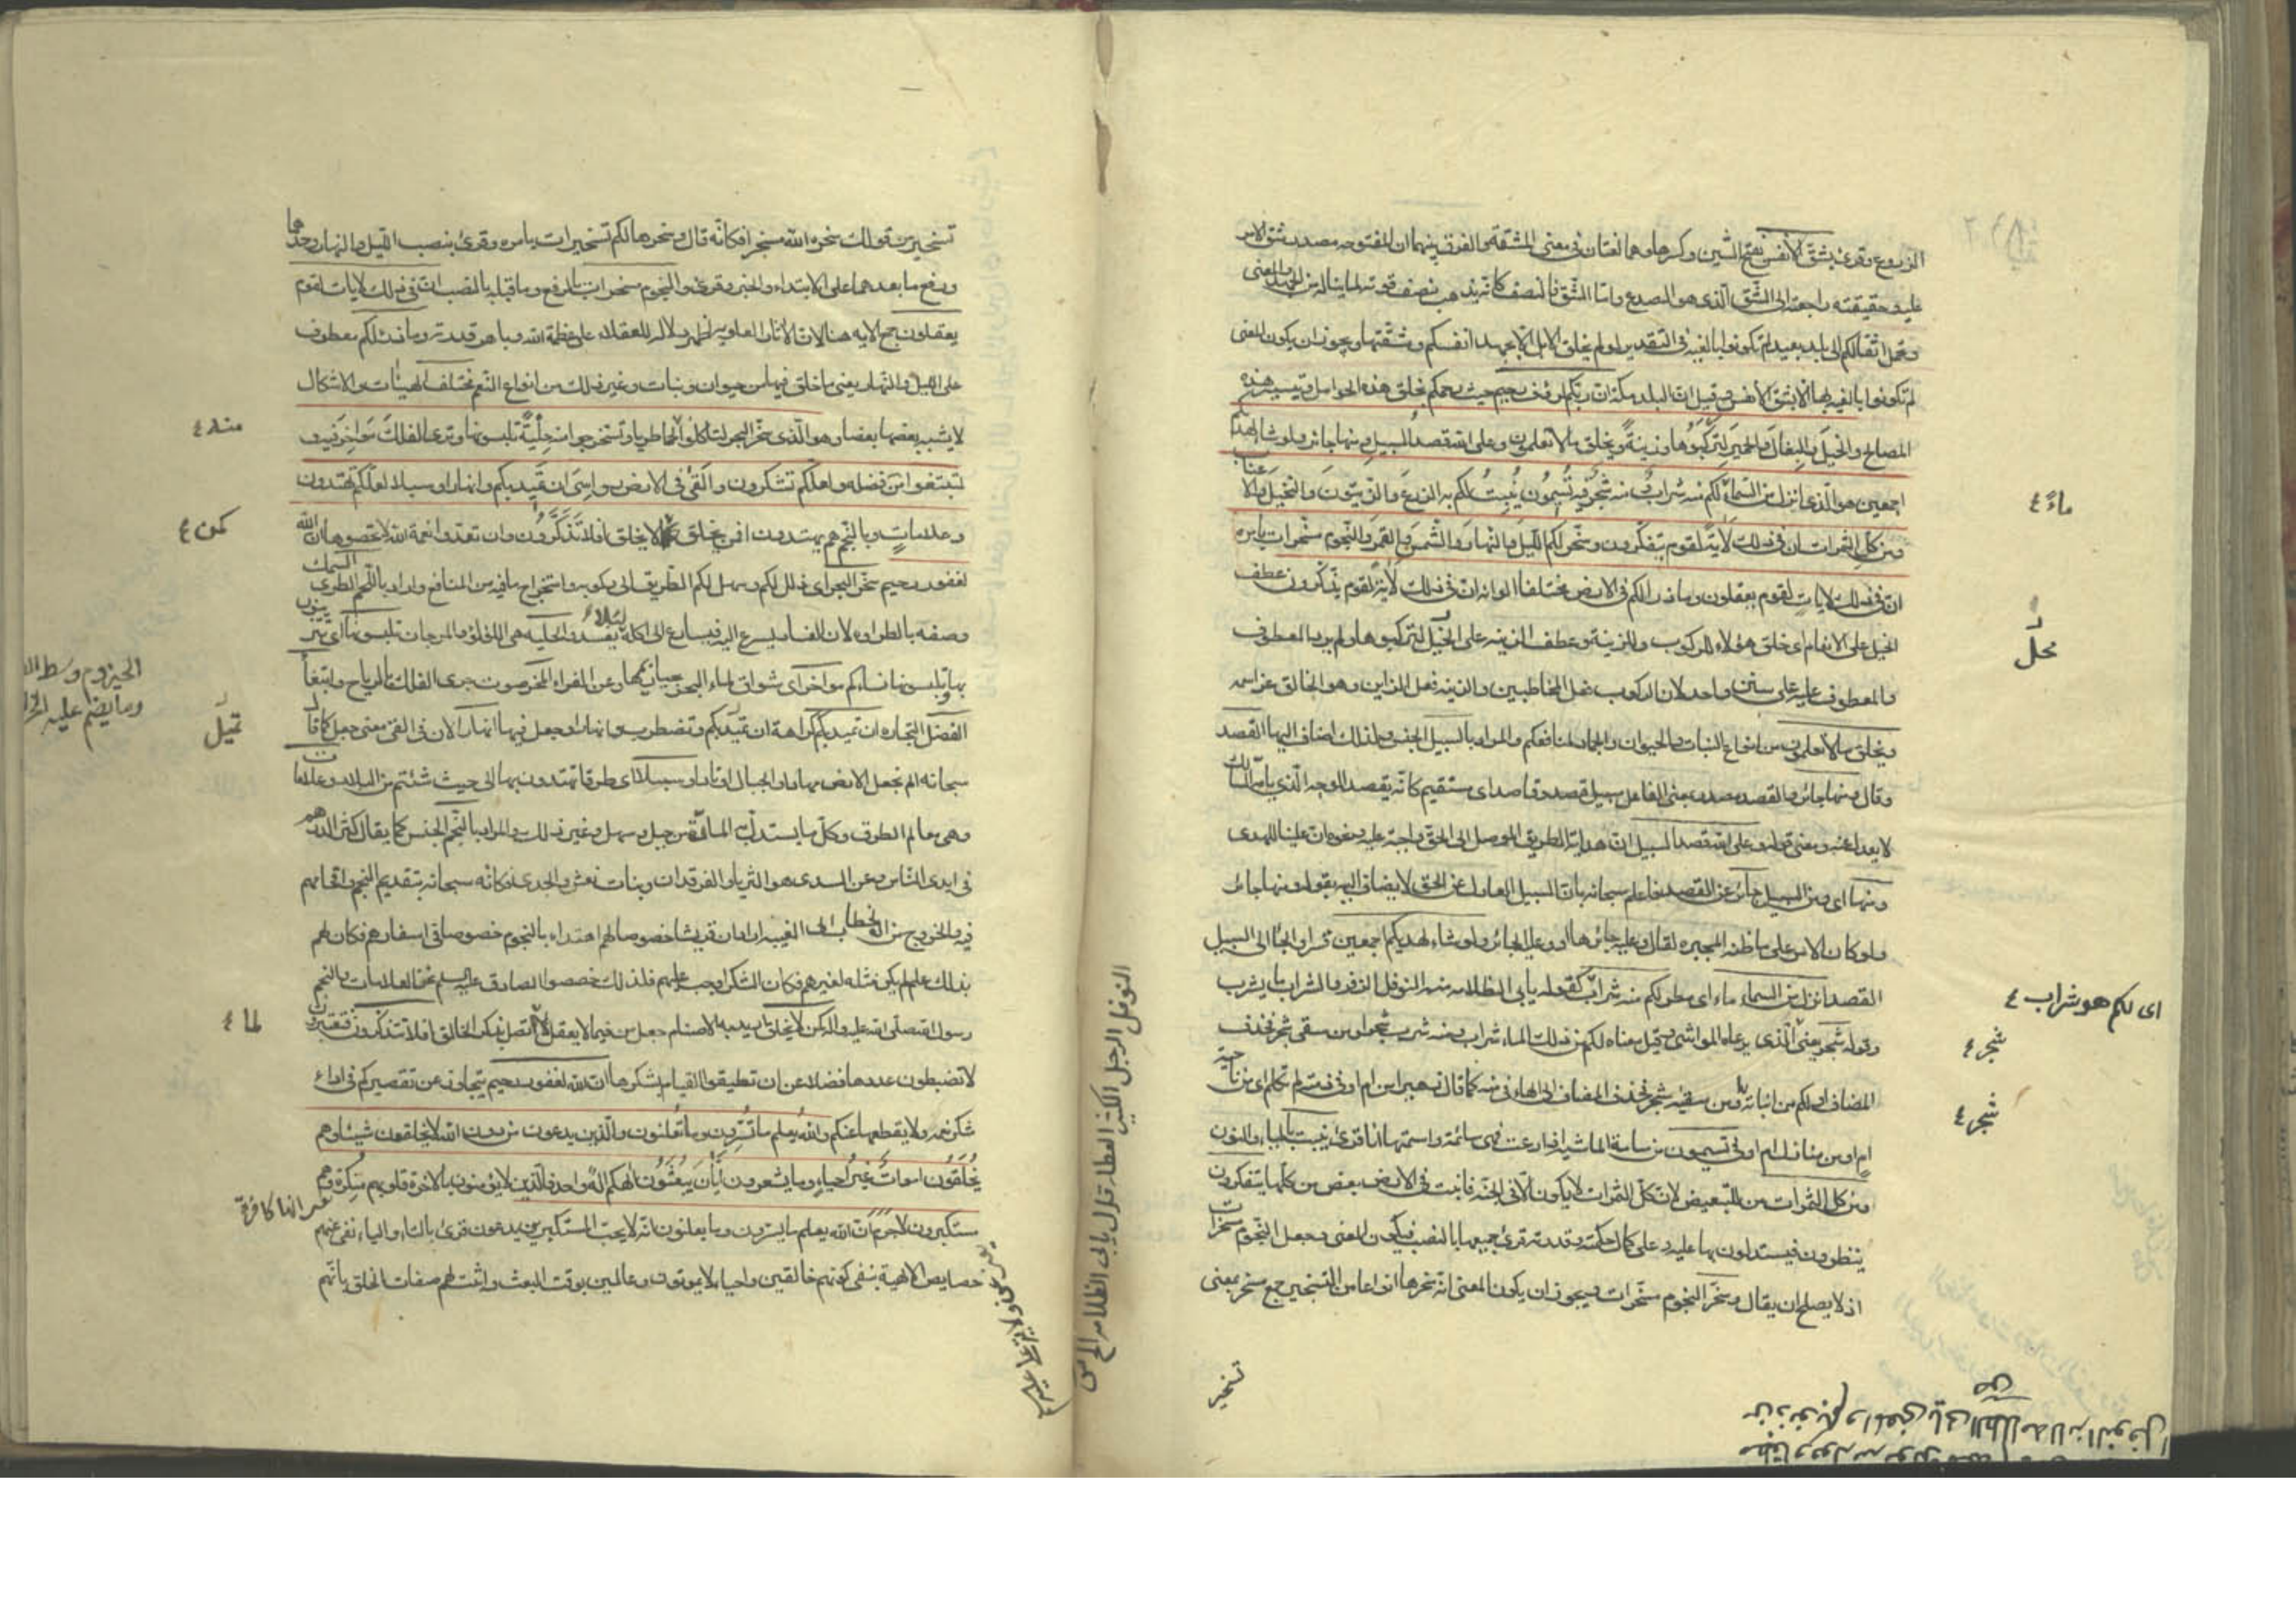 الزروع وقرئ بشق الأنفس بفتح الشين وكسرها وهما لغتان في معنى المشقة والفرق بينهما ان المفتوحه مصدر شق الامر
عليه وحقيقته راجعة الى الشق الذى هو الصدع واما الشق فالنصف كانه يذهب نصف قوته لما يناله من الجهد والمعنى
وتحمل اثقالكم الى بلد بعيد لم تكونوا بالغيه فى التقدير لو لم يخلق الابل الا بجهد انفسكم ومشقتها ويجوز ان يكون المعنى
لم تكونوا بالغيه بها الا بشق الأنفس وقيل ان البلد مكة ان ربكم لرؤف رحيم حيث رحمكم بخلق هذه الحوامل وتيسير هذه
المصالح والخيل والبغال والحمير لتركبوها وزينة ويخلق ما لا تعلمون وعلى الله قصد السبيل ومنها جائر ولو شاء لهديكم
اجمعين هو الذى انزل من السماء لكم منه شراب ومنه شجر فيه تسيمون ينبت لكم به الزرع والزيتون والنخيل والاعناب
ومن كل الثمرات ان فى ذلك لاية لقوم يتفكرون وسخر لكم الليل والنهار والشمس والقمر والنجوم مسخرات بامره
ان فى ذلك لايات لقوم يعقلون وما ذرا لكم فى الارض مختلفا الوانه ان فى ذلك لاية لقوم يذكرون عطف
الخيل على الانعام اى خلق هؤلاء للركوب والزينة وعطف الزينه على لتركبوها ولم يرد المعطوف
والمعطوف عليه على سنن واحد لان الركوب فعل المخاطبين والزينه فعل الزاين وهو الخالق عز اسمه
ويخلق ما لا تعلمون من انواع النبات والحيوان والجماد لمنافعكم والمراد بالسبيل الجنس ولذلك اضاف اليها القصد
وقال ومنها جائر والقصد مصدر بمعنى الفاعل سبيل قصد وقاصد اى مستقيم كانه يقصد الوجه الذى يامه السالك
لا يعدل عنه ومعنى قوله وعلى الله قصد السبيل ان هداية الطريق الموصل الى الحق واجبة عليه ونحوه ان علينا للهدى
ومنها اى ومن السبيل جائر عن القصد فاعلم سبحانه بان السبيل العادل عن الحق لا يضاف اليه بقوله ومنها جائر
ولو كان الامر على ما ظنه المجبره لقال وعليه جائرها او وعليه الجائر ولو شاء لهديكم اجمعين قسرا والجاء الى السبيل
القصد انزل من السماء ماء اى مطر لكم منه شراب كقوله يابى الظلامة منه النوفل الزفر والشراب ما يشرب
وقوله شجر يعنى الذى يرعاه المواشى وقيل معناه لكم من ذلك الماء شراب ومنه شرب شجر او من سقى شجر فحذف
المضاف او لكم من انباته ومن سقيه شجر فحذف المضاف الى الهاء فى منه كما قال زهير امن ام اوفى دمنة لم تكلم اى من ناحية
ام اوفى من منازل ام اوفى تسيمون من سامة الماشية اذا رعت فهى سائمة واسمتها انا قرئ ينبت بالياء والنون
ومن كل الثمرات من للتبعيض لان كل الثمرات لا يكون الا فى الجنه فانبت فى الارض بعض من كلها يتفكرون
ينظرون فيستدلون بها عليه وعلى كمال حكمته وقدرته قرئ جميعها بالنصب فيكون المعنى وجعل النجوم مسخرات
اذ لا يصلح ان يقال وسخر النجوم مسخرات ويجوز ان يكون المعنى انه سخرها انواعا من التسخير جمع مسخر بمعنى
تسخير
ماءً ٤
محل
اى لكم هو شراب ٤
شجر ٤
شجر ٤
النوفل الرجل الكثير العطاء قوله يابى الظلامه الخ
تسخير من قولك سخره الله مسخرا فكانه قال وسخرها لكم تسخيرات بامره وقرئ بنصب الليل والنهار وحدهما
ورفع ما بعدهما على الابتداء والخبر وقرئ والنجوم مسخرات بالرفع وما قبله بالنصب ان فى ذلك لايات لقوم
يعقلون جمع الايه هنا لان الاثار العلويه اظهر دلاله للعقلاء على عظمة الله وباهر قدرته وما ذرا لكم معطوف
على الليل والنهار يعنى ما خلق فيها من حيوان ونبات وغير ذلك من انواع النعم مختلف الهيئات والاشكال
لا يشبه بعضها بعضا وهو الذى سخر البحر لتاكلوا لحما طريا وتستخرجوا منه حلية تلبسونها وترى الفلك مواخر فيه
لتبتغوا من فضله ولعلكم تشكرون والقى فى الارض رواسى ان تميد بكم وانهارا وسبلا لعلكم تهتدون
وعلامات وبالنجم هم يهتدون افمن يخلق كمن لا يخلق افلا تذكرون وان تعدوا نعمة الله لا تحصوها ان الله
لغفور رحيم سخر البحر اى ذلل لكم وسهل لكم الطريق الى ركوبه واستخراج ما فيه من المنافع واراد باللحم الطرى السمك
وصفه بالطراوه لان الفساد يسرع اليه فيسارع الى اكله لئلا يفسد والحليه هى اللؤلؤ والمرجان تلبسونها اى تتزينون
بها وتلبسونها نساءكم مواخر اى شواق لماء البحر بحيازيمها وعن الفراء المخر صوت جرى الفلك بالرياح وابتغاء
الفضل التجاره ان تميد بكم كراهة ان تميد بكم وتضطرب وانهارا وجعل فيها انهارا لان فى القى معنى جعل كما قال
سبحانه الم نجعل الارض مهادا والجبال اوتادا وسبلا اى طرقا تهتدون بها الى حيث شئتم من البلاد وعلامات
وهى معالم الطرق وكل ما يستدل به المارة من جبل وسهل وغير ذلك والمراد بالنجم الجنس كما يقال كثر الدرهم
فى ايدى الناس وعن السدى هو الثريا والفرقدان وبنات نعش والجدى وكانه سبحانه بتقديم النجم واقحامهم
فيه والخروج من الخطاب الى الغيبه اراد ان قريشا خصوصا لهم اهتداء بالنجوم خصوصا فى اسفارهم فكان لهم
بذلك علم لم يكن مثله لغيرهم فكان الشكر اوجب عليهم فلذلك خصصوا الصادق عليه السلم نحن العلامات والنجم
رسول الله صلى الله عليه واله كمن لا يخلق يريد به الاصنام جعل من فيما لا يعقل لما اتصل بذكر الخالق افلا تذكرون فتعتبرون
لا تضبطون عددها فضلا عن ان تطيقوا القيام بشكرها ان الله لغفور رحيم يتجاوز عن تقصيركم فى اداء
شكر نعمه ولا يقطعها عنكم والله يعلم ما تسرون وما تعلنون والذين يدعون من دون الله لا يخلقون شيئا وهم
يخلقون اموات غير احياء وما يشعرون ايان يبعثون الهكم اله واحد فالذين لا يؤمنون بالاخرة قلوبهم منكرة وهم
مستكبرون لا جرم ان الله يعلم ما يسرون وما يعلنون انه لا يحب المستكبرين يدعون قرئ بالتاء والياء نفى عنهم
خصايص الالهية بنفى كونهم خالقين واحياء لا يموتون وعالمين بوقت البعث واثبت لهم صفات الخلق بانهم
منه ٤
كمن ٤
الحيزوم وسط
وما يضم عليه
تميل
لما ٤